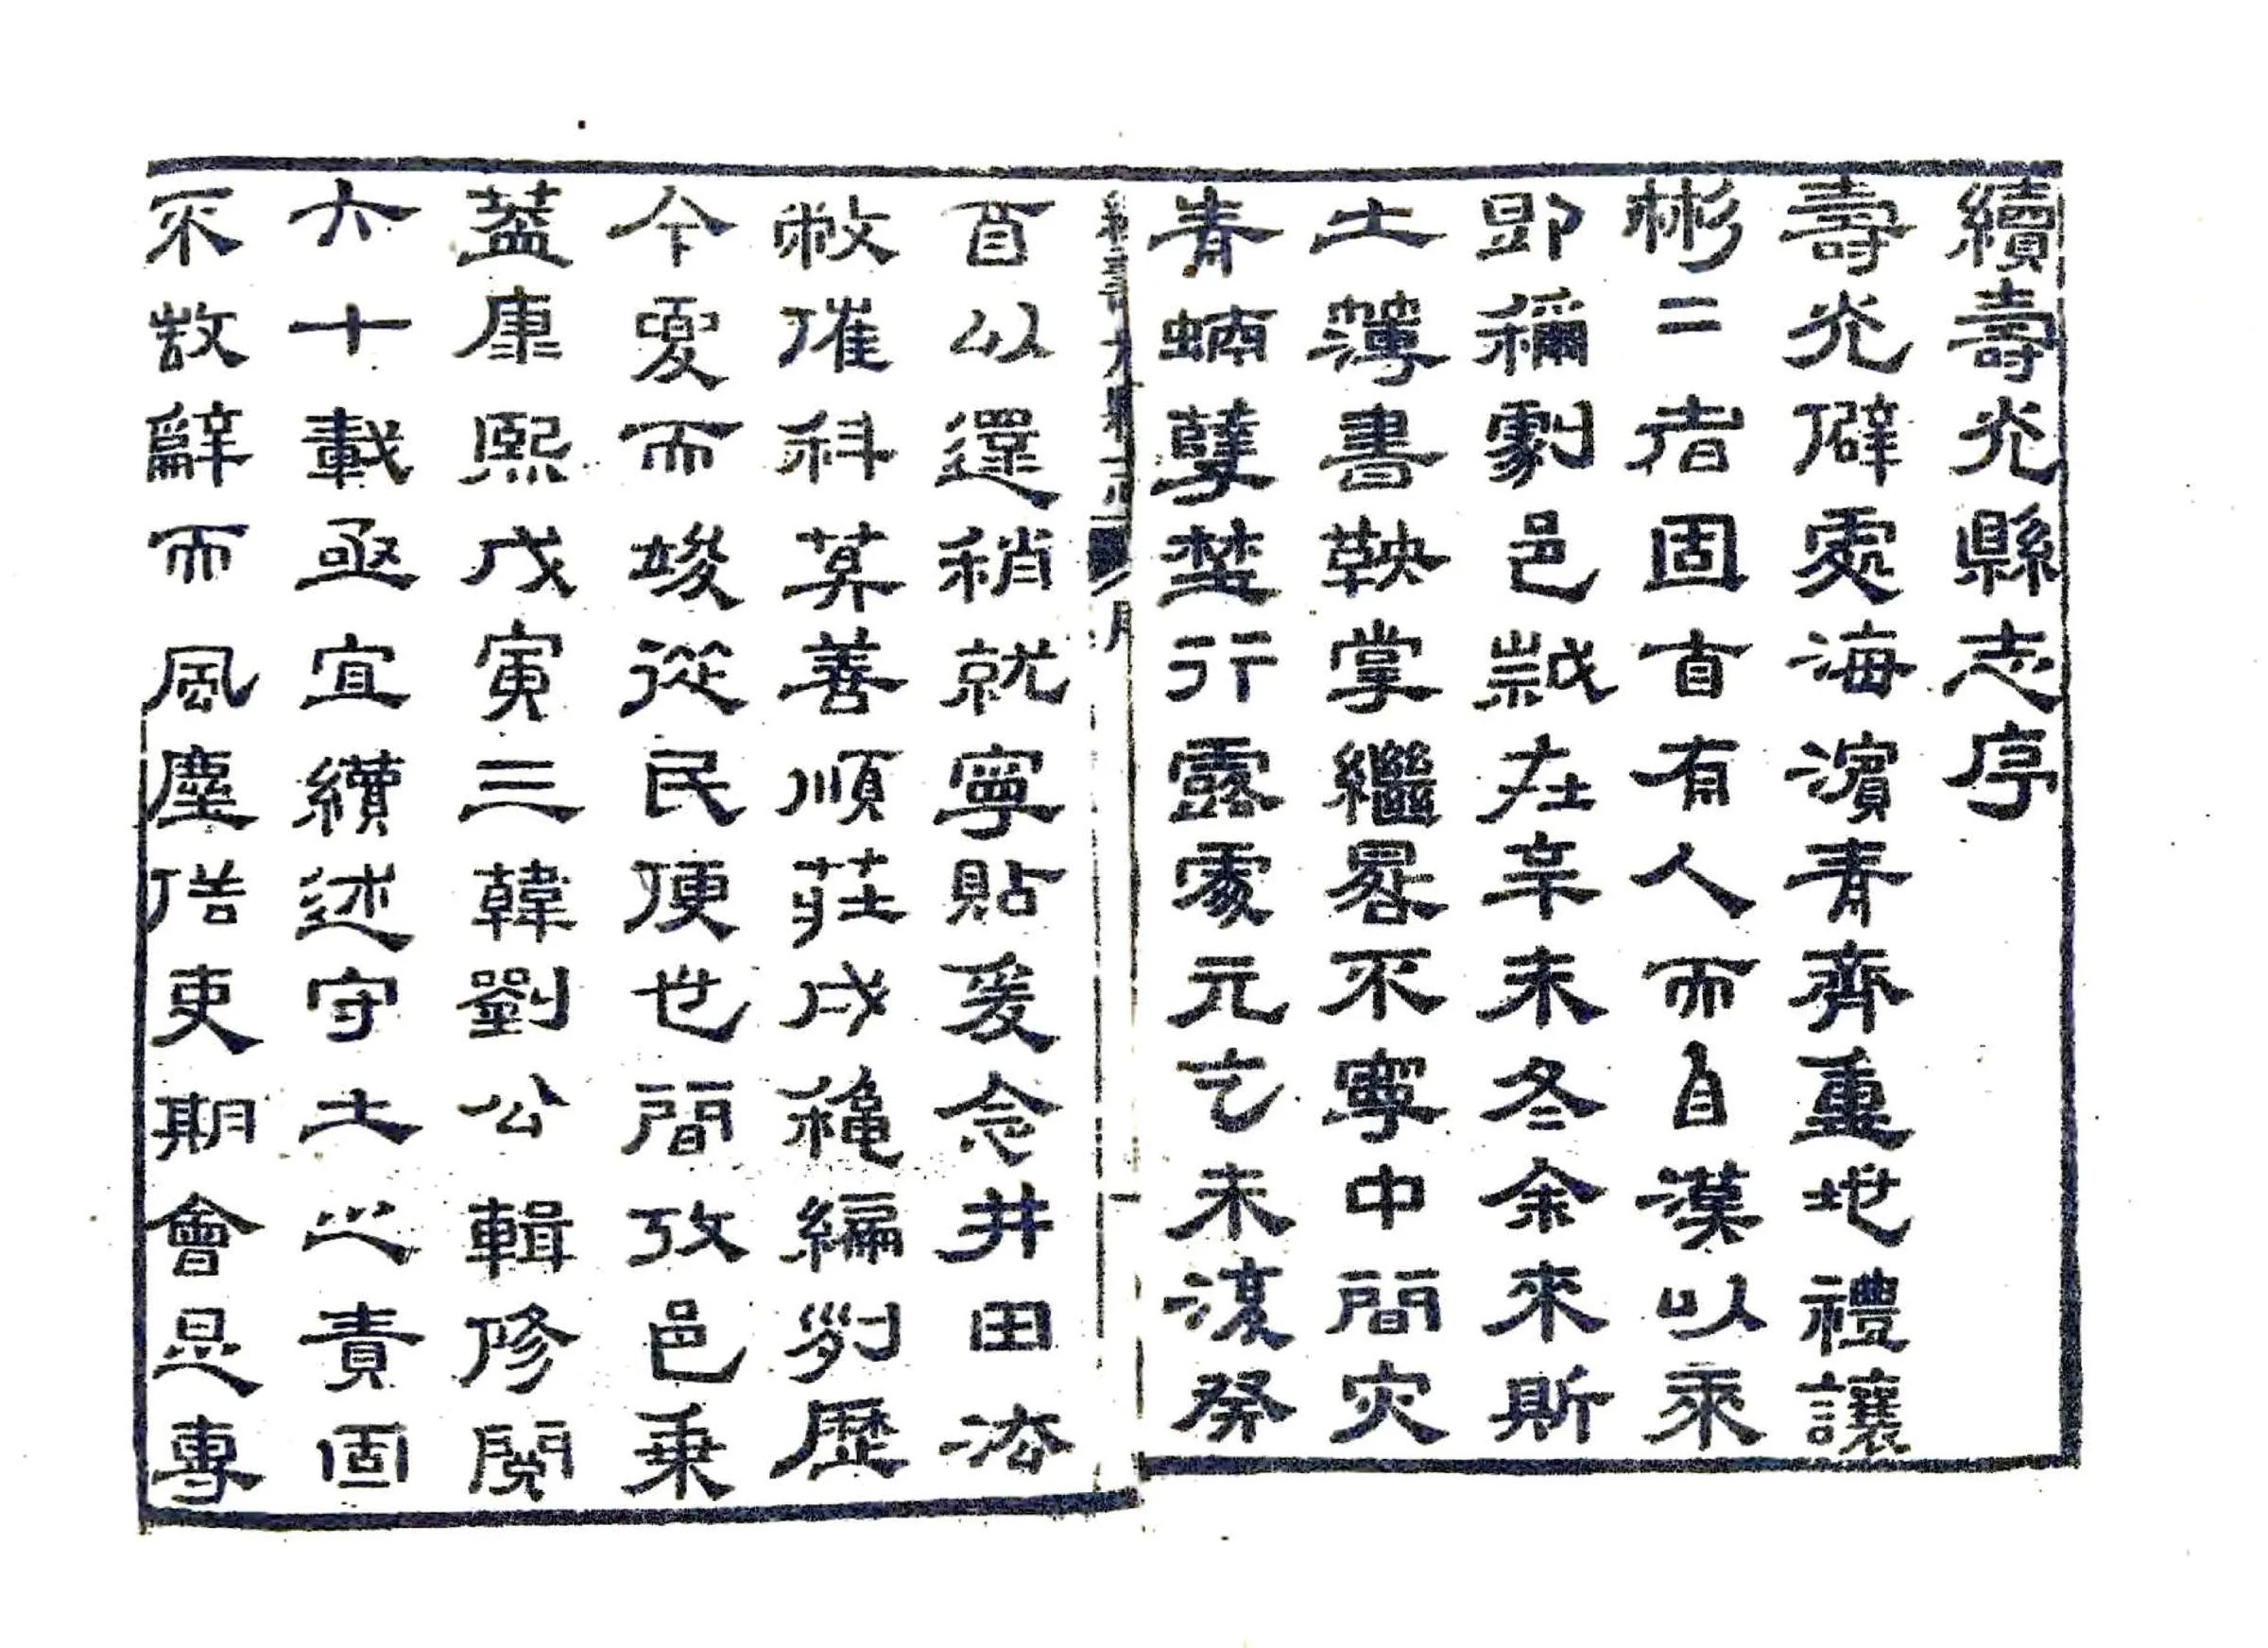 續壽光縣志序
壽光僻處海濱青齊重地禮讓
彬二者固百有人而自漢以來
即稱劇邑歲在辛未冬余來斯
土簿書鞅掌繼晷不寧中間灾
青蝻孽埜行露處元乞未復癸
酉以還稍就寧貼爰念井田法
敝催科莫善順莊戌龝編列歷
今夏而竣從民便也簡攷邑乘
蓋康熙戊寅三韓劉公輯修閱
六十載亟宜續述守土之責固
不敢辭而風塵俗吏期會是專